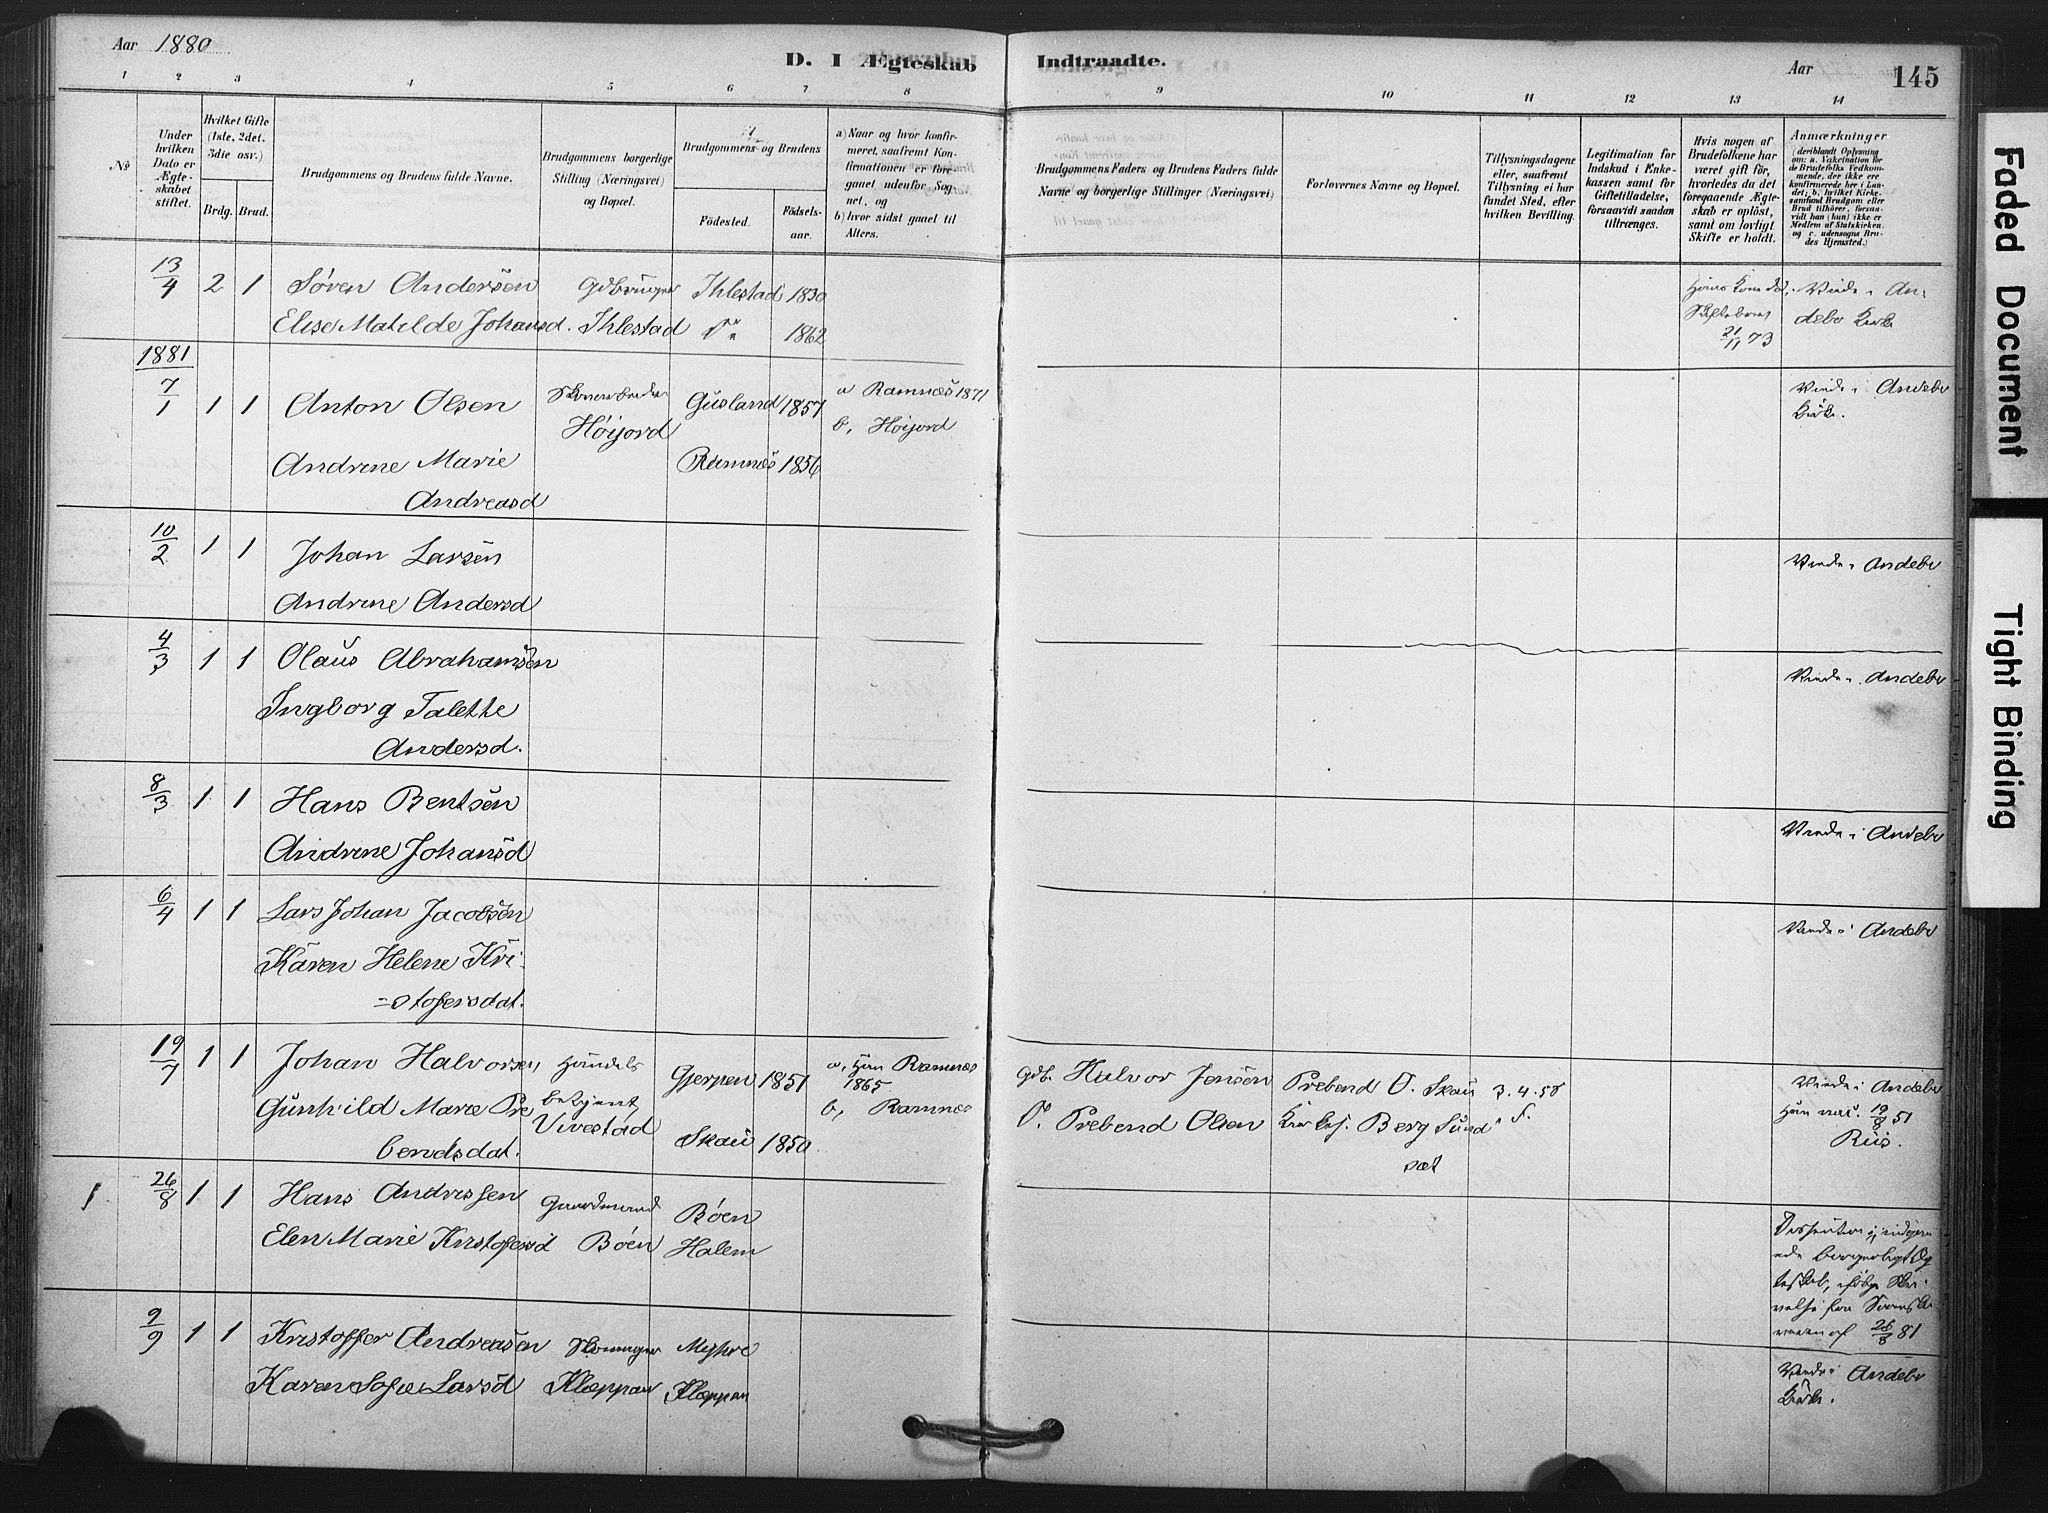 Aar 1880
D. I Ægteskab Indtraadte.
Aar
145
1 2 3 4 5 6 7 8 9 10 11 12 13 14
No
Under hvilken Dato er Ægteskabet stiftet.
Hvilket Gifte (1ste, 2det, 3die osv.)
Brdg. Brud.
Brudgommens og Brudens fulde Navne.
Brudgommens borgerlige Stilling (Næringsvei) og Bopæl.
Brudgommens og Brudens
Födested. Födselsaar.
a) Naar og hvor konfirmeret, saafremt Konfirmationen er foregaaet udenfor Sognet, og
b) hvor sidst gaaet til Alters.
Brudgommens Faders og Brudens Faders fulde Navne og borgerlige Stillinger (Næringsvei)
Forlovernes Navne og Bopæl.
Tillysningsdagene eller, saafremt Tillysning ei har fundet Sted, efter hvilken Bevilling.
Legitimation for Indskud i Enkekassen samt for Giftetilladelse, forsaavidt saadan tiltrænges.
Hvis nogen af Brudefolkene har været gift för, hvorledes da det foregaaende Ægteskab er oplöst, samt om lovligt Skifte er holdt.
Anmærkninger
(deriblandt Oplysning om: a. Vakcination for de Brudefolks Vedkommende, der ikke ere konfirmerede her i Landet; b. hvilket Kirkesamfund Brudgom eller Brud tilhörer, forsaavidt han (hun) ikke er Medlem af Statskirken, og c. udensogns Brudes Hjemsted.)
13/4 2 1 Søren Andersen Gdbruger Ihlestad 1830
Elise Matilde Johansd. Ihlestad Do 1862
21/11 73
Viede i Andebo Kirke
1881
7/1 1 1 Anton Olsen Gusland 1857 a Ramnæs 1871
Høijord b, Høijord
Andrine Marie Ramnæs 1856
Andreasd
Viede i Andebo Kirke.
10/2 1 1 Johan Larsen
Andrine Andersd
Viede i Andebo
4/3 1 1 Olaus Abrahamsen
Ingborg Talette
Andersd.
Viede i Andebo
8/3 1 1 Hans Bentsen
Andrine Johansd
Viede i Andebo
6/4 1 1 Lars Johan Jacobsen
Karen Helene Kri
=stofersdat.
Viede i Andebo
19/7 1 1 Johan Halvorsen, Handels Gjerpen 1851 a, Han Ramnæs 1865
Gunhild Marie Pre betjent, b, Ramnæs
bendsdat. Vivestad Skau 1850
Gdb. Halvor Jensen Prebend O. Skau 3.4.5 S.
Do. Prebend Olsen Kirkesj. Berg Sund
sæt
Viede i Andebo
Han vac. 19/8 51
Riis.
1 26/8 1 1 Hans Andersen Gaardmand Bøen
Elen Marie Kristofersd Bøen Halem
Dissentere, indgaaede borgerligt Ægteskab, ifølge Skrivelse fra Sorenskriveren af 26/8 81
9/9 1 1 Kristoffer Andreasen Myhre
Karen Sofie Larsd Klæppan Klæppan
Viede i Andebo Kirke.
Faded Document
Tight Binding